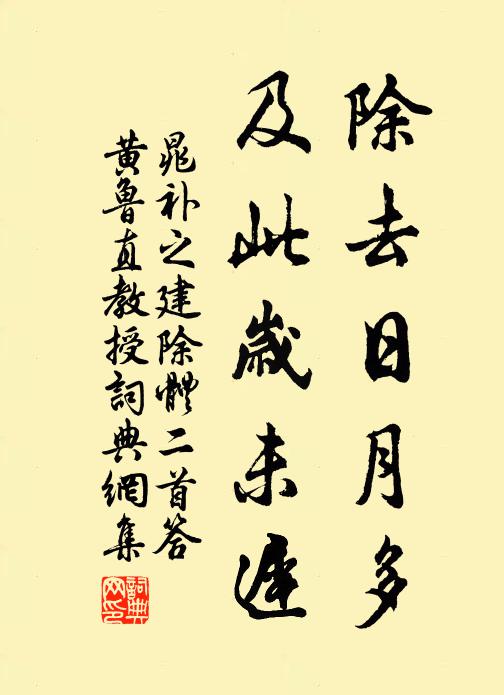 除去日月多
及此歲未遲
晁补之建除體二首答
黃魯直教授詞典網集
詞典網印